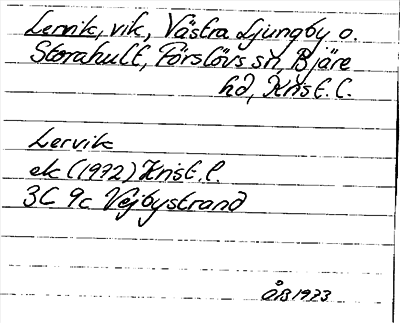 Lervik, vik, Västra Ljungby o.
Storahult, Förslövs sn, Bjäre
hd, Krist. l.
Lervik
ek (1972) Krist. l.
3C 9c Vejbystrand
ÖB 1973